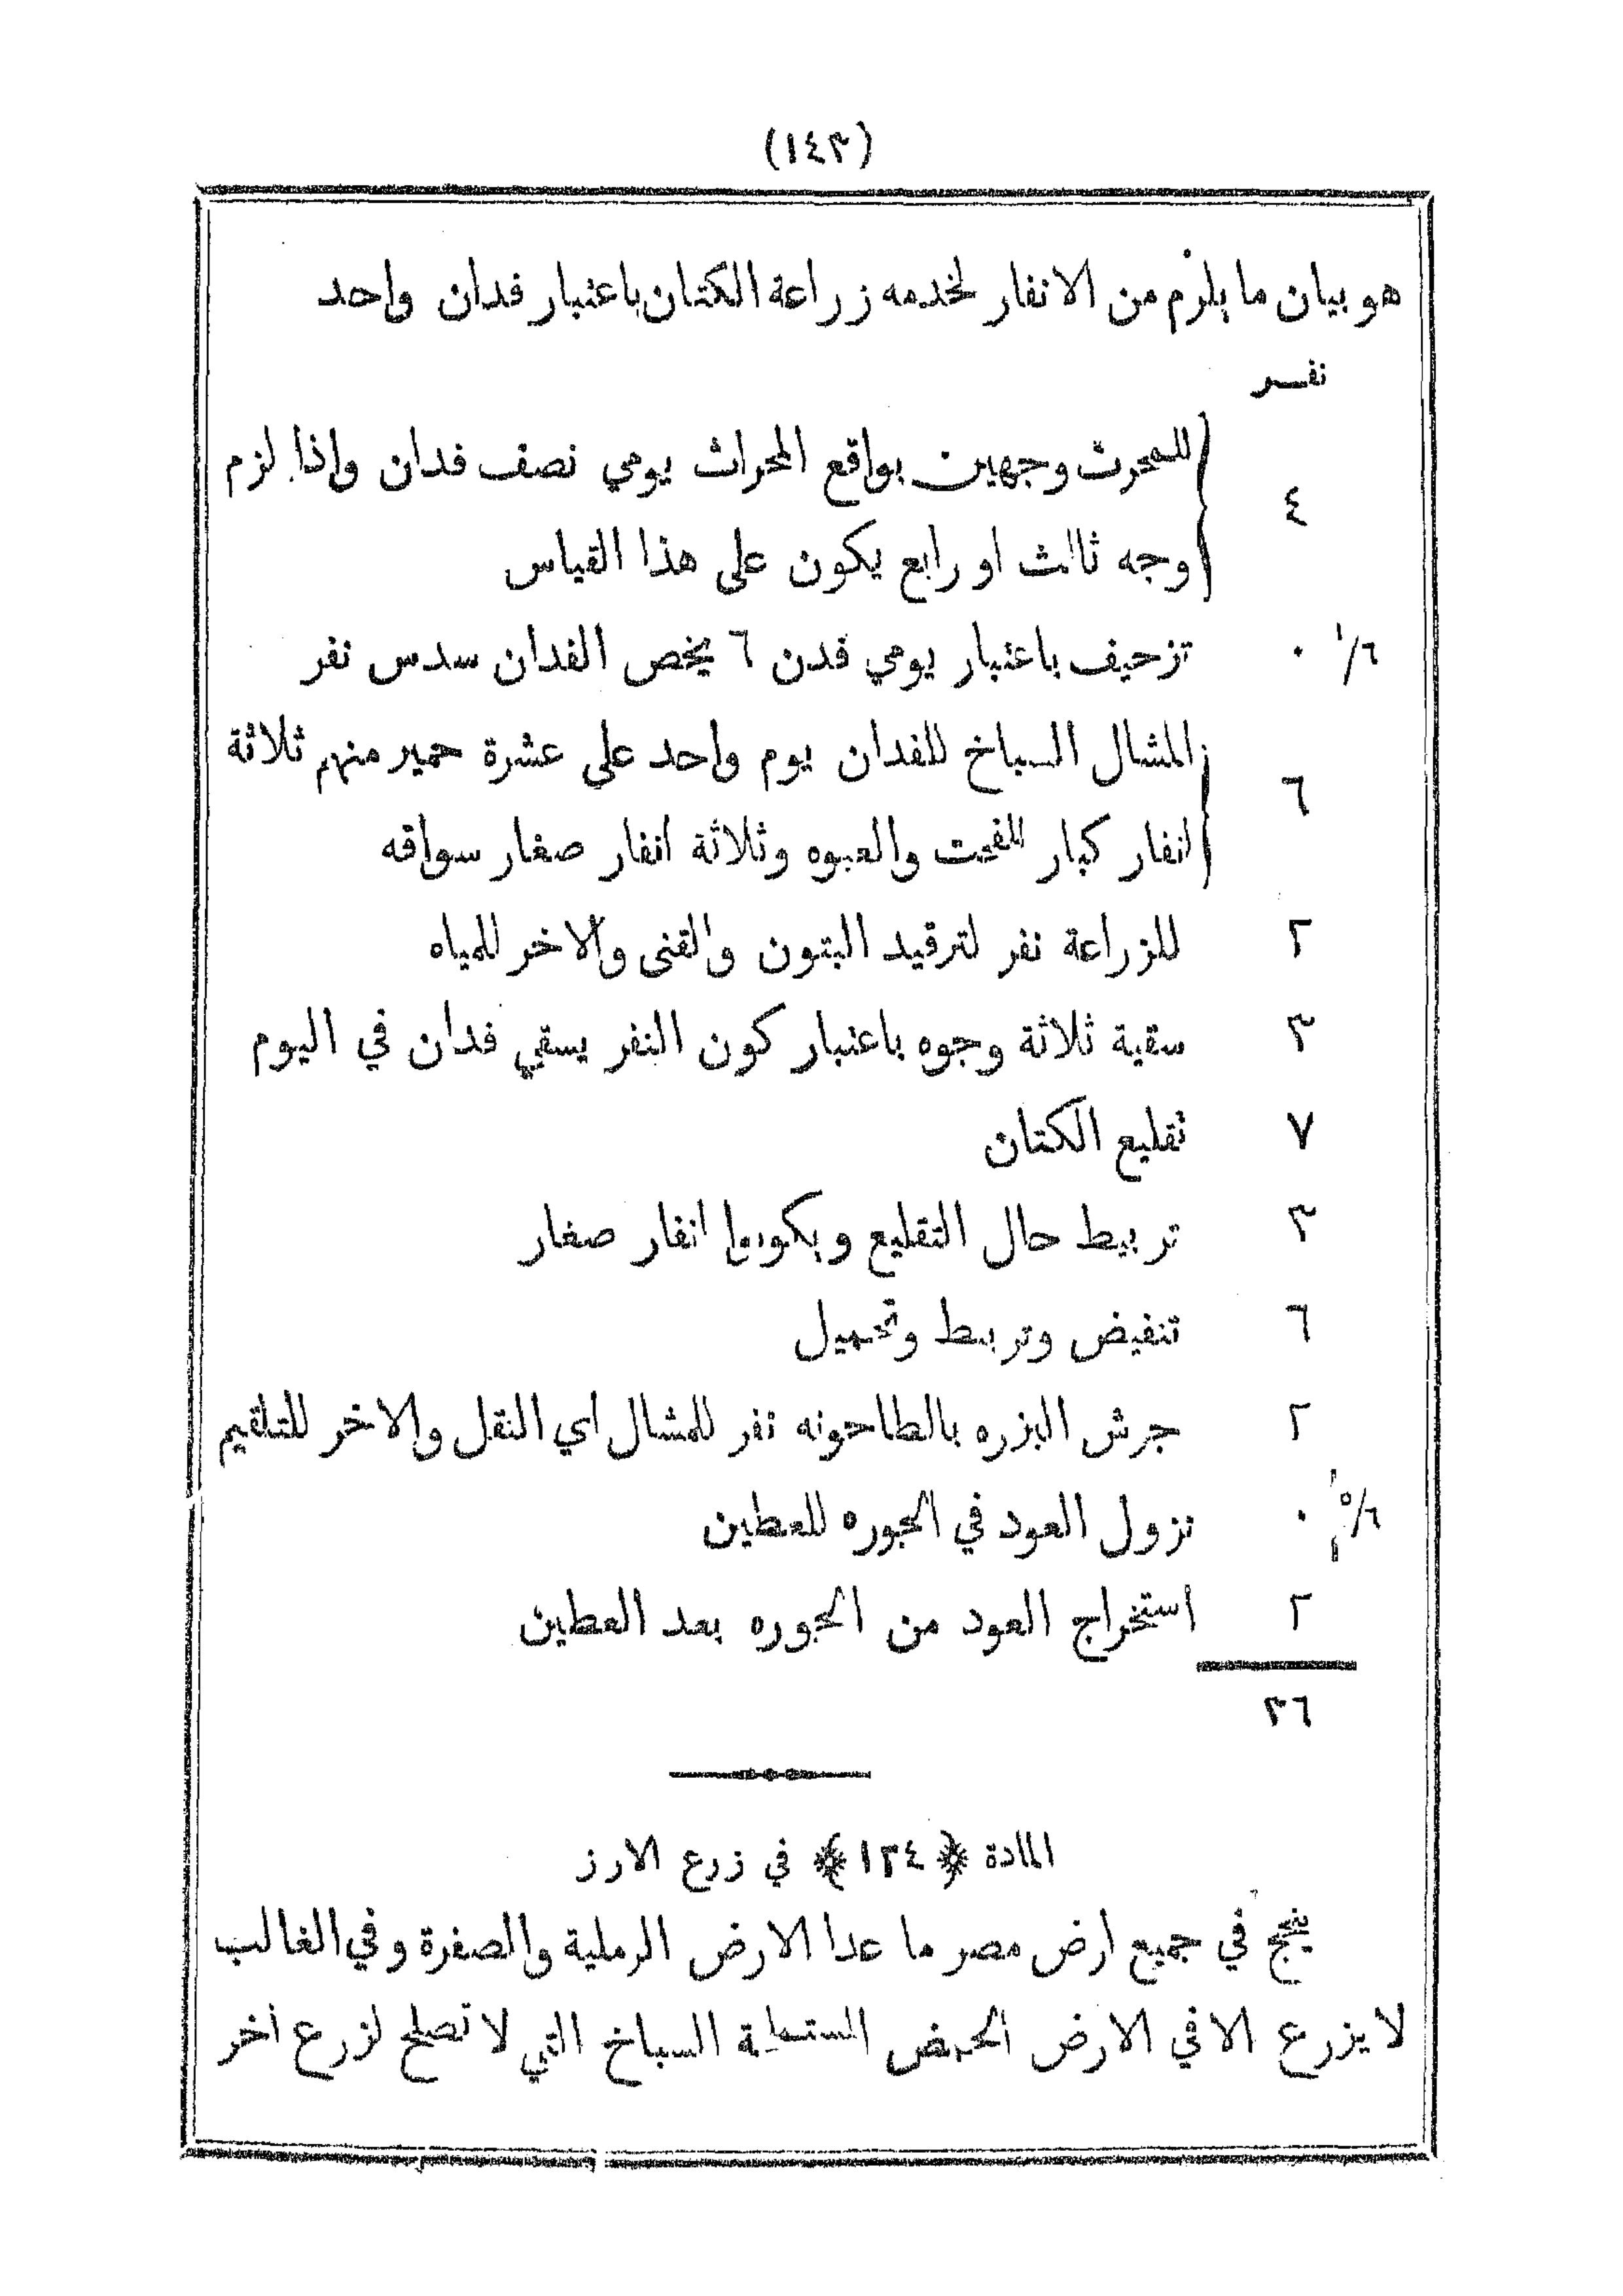 (١٤٣)
هو بيان ما يلزم من الانفار لخدمه زراعة الكتان باعتبار فدان واحد
نفر
٤ للحرث وجهين بواقع المحراث يومي نصف فدان واذا لزم
وجه ثالث او رابع يكون على هذا القياس
٠ ١/٦ تزحيف باعتبار يومي فدن ٦ يخص الفدان سدس نفر
٦ المشال السباخ للفدان يوم واحد على عشرة حمير منهم ثلاثة
انفار كبار للفحت والعبوه وثلاثة انفار صغار سواقه
٢ للزراعة نفر لترقيد البتون والقنى والاخر للمياه
٣ سقية ثلاثة وجوه باعتبار كون النفر يسقي فدان في اليوم
٧ تقليع الكتان
٣ تربيط حال التقليع ويكونوا انفار صغار
٦ تنفيض وتربيط وتحميل
٢ جرش البزره بالطاحونه نفر للمشال اي النقل والاخر للتلقيم
٠ ٥/٦ نزول العود في الجوره للعطين
٢ استخراج العود من الجوره بعد العطين
٣٦
المادة ﴿١٣٤﴾ في زرع الارز
ينجح في جميع ارض مصر ما عدا الارض الرملية والصفرة وفي الغالب
لا يزرع الا في الارض الحمض السباخ التي لا تصلح لزرع اخر